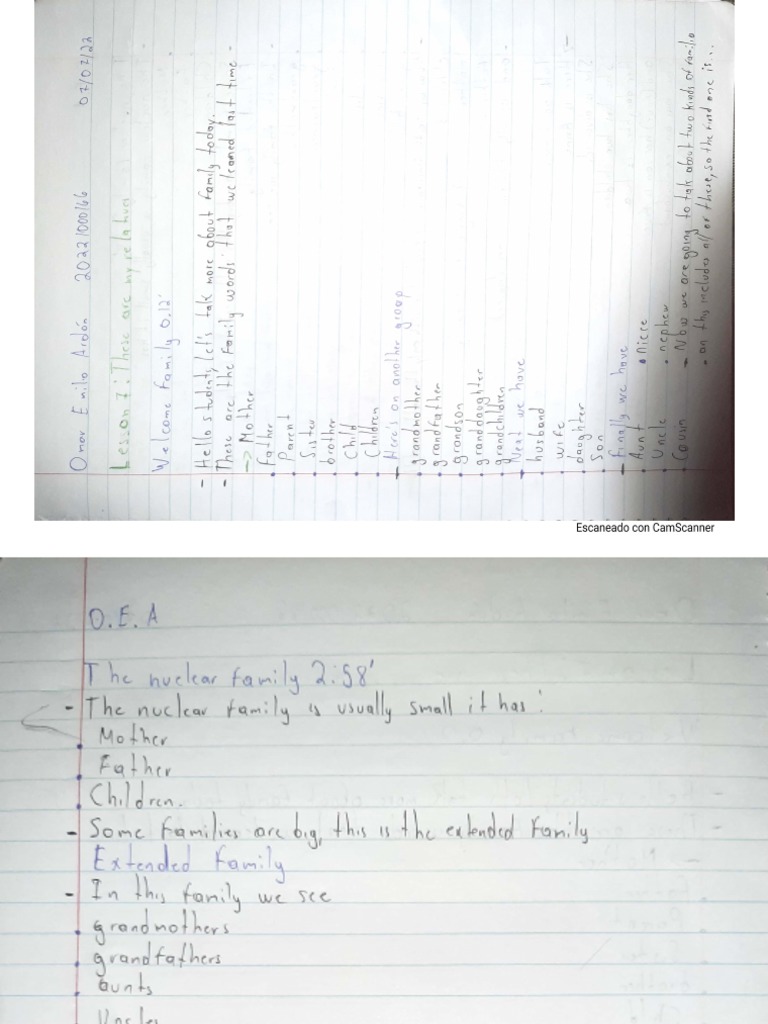 Omar Emilo Ardón 20221000166 02/02/22
Lesson I: These are my relatives
Welcome Family 0.12'
- Hello students, let's talk more about family today.
- These are the Family words that we learned last time -
-> Mother
Father
Parent
Sister
brother
Child
Children
Here's an another group
grandmother
grandfather
grandson
granddaughter
grandchildren
Next we have
husband
wife
daughter
Son
Finally we have
Aunt • niece
Uncle • nephew
Cousin - Now we are going to talk about two kinds of familie
• an this includes all of these, so the first one is...
Escaneado con CamScanner
O.E.A
The nuclear family 2:58'
- The nuclear family is usually small it has:
Mother
Father
Children.
- Some families are big, this is the extended Family
Extended Family
- In this family we see
grandmothers
grandfathers
aunts
Uncles